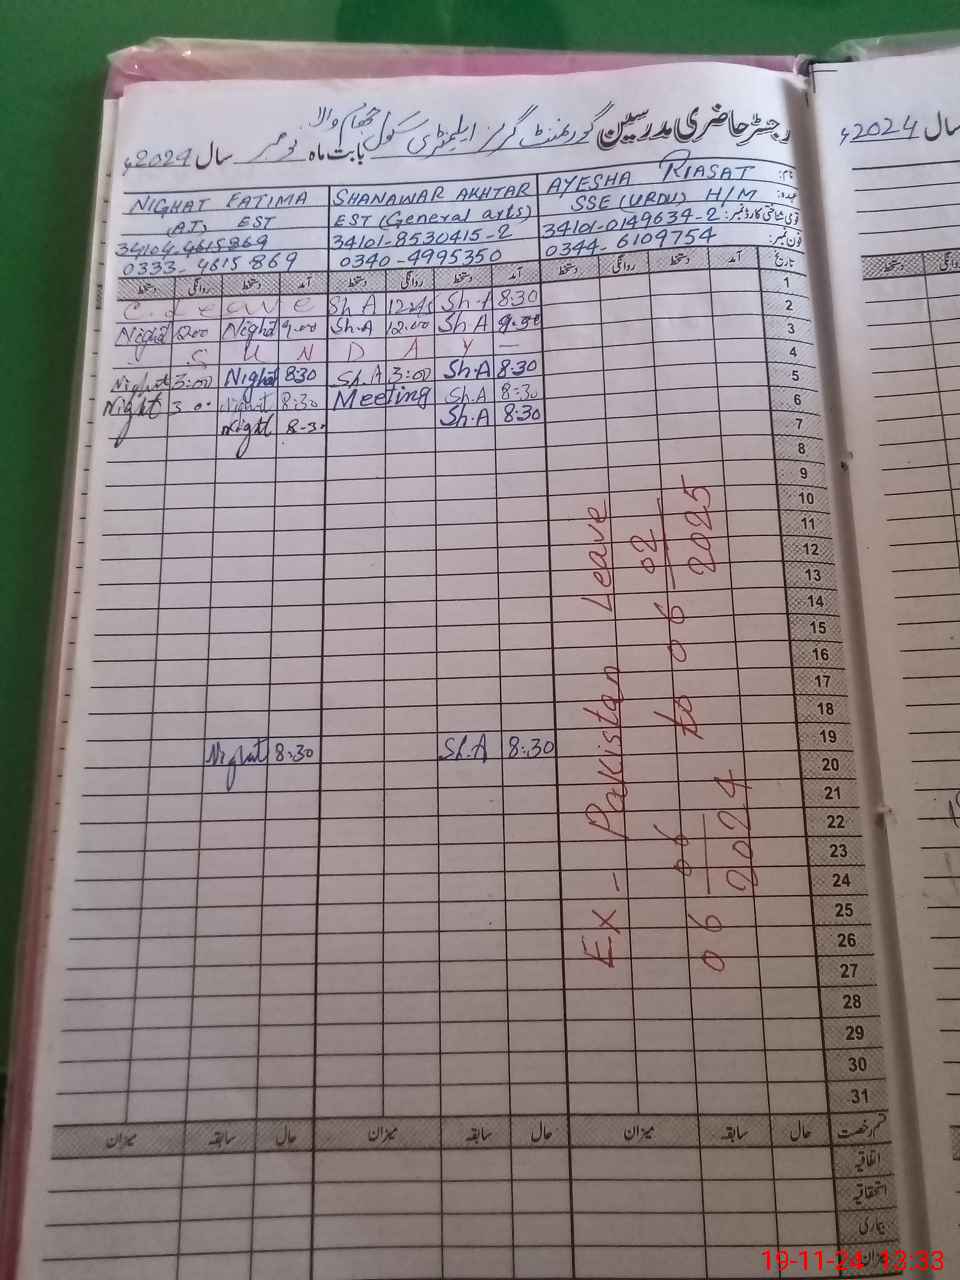 رجسٹر حاضری مدرسین گورنمنٹ گرلز ایلیمنٹری سکول بابت ماہ نومبر سال 2024ء
سال 2024ء
نام: AYESHA RIASAT SHANAWAR AKHTAR NIGHAT FATIMA
عہدہ: SSE (URDU) H/M EST (General arts) AT) EST
قومی شناختی کارڈ نمبر: 34101-0149634-2 34101-8530415-2 34104-4615869
فون نمبر: 0344-6109754 0340-4995350 0333-4615869
تاریخ آمد دستخط روانگی دستخط آمد دستخط روانگی دستخط آمد دستخط روانگی دستخط
دستخط
1 8:30 Sh.A 1245 Sh A C. Leave
2 9.30 Sh A 12.00 Sh.A 9.00 Nighat 200 Nighat
3 S U N D A Y —
4 8:30 Sh.A 3:00 Sh.A 8:30 Nighat 3:00 Nighat
5 8:30 Sh.A Meeting 8:30 Nighat 3.00 Nighat
6 8:30 Sh.A 8-30 Nighat
7
8
9
10
11
12
13
14
15
16
17
18
19 8:30 Sh.A 8:30 Nighat
20
21
22
23
24
25
26
27
28
29
30
31
Ex - Pakistan Leave
06 06 2024 to 06 02 2025
قسم رخصت حال سابقہ میزان حال سابقہ میزان حال سابقہ میزان
اتفاقیہ
استحقاقیہ
بیماری
میزان
19-11-24 13:33